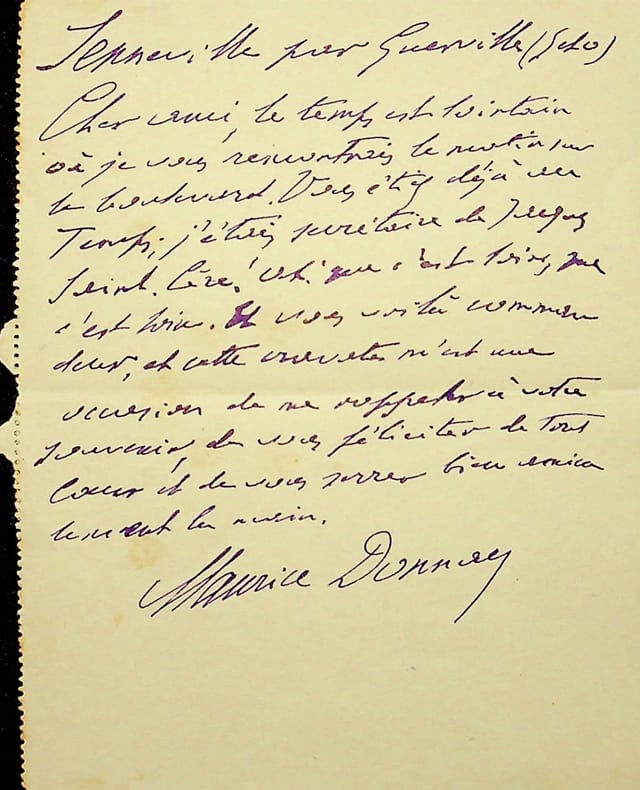 Senneville par Guerville (S et O)
Cher ami, le temps est lointain
où je vous rencontrais le matin sur
le boulevard. Vous étiez déjà au
Temps, j'étais secrétaire de Jacques
Saint-Cère. ah! que c'est loin, que
c'est loin. Et vous voilà comman
deur, et cette cravate m'est une
occasion de me rappeler à votre
souvenir, de vous féliciter de tout
cœur et de vous serrer bien amica
lement la main.
Maurice Donnay